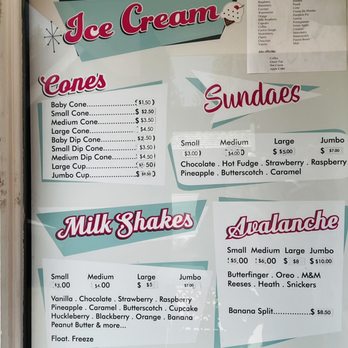 Ice Cream
Cones
Baby Cone..........($1.50)
Small Cone..........($2.50)
Medium Cone.....($3.50)
Large Cone..........($4.50)
Baby Dip Cone.....($2.50)
Small Dip Cone.....($3.50)
Medium Dip Cone...($4.50)
Large Cup............
Jumbo Cup...........
Sundaes
Small Medium Large Jumbo
($3.00) ($4.00) ($5.00 $7.00
Chocolate . Hot Fudge . Strawberry . Raspberry
Pineapple . Butterscotch . Caramel
Milk Shakes
Small Medium Large Jumbo
$3.00 $4.00 $5 $7.00
Vanilla . Chocolate . Strawberry . Raspberry
Pineapple . Caramel . Butterscotch . Cupcake
Huckleberry . Blackberry . Orange . Banana
Peanut Butter & more...
Float. Freeze
Avalanche
Small Medium Large Jumbo
$5.00 $6.00 $8 $10.00
Butterfinger . Oreo . M&M
Reeses . Heath . Snickers
Banana Split........$8.50